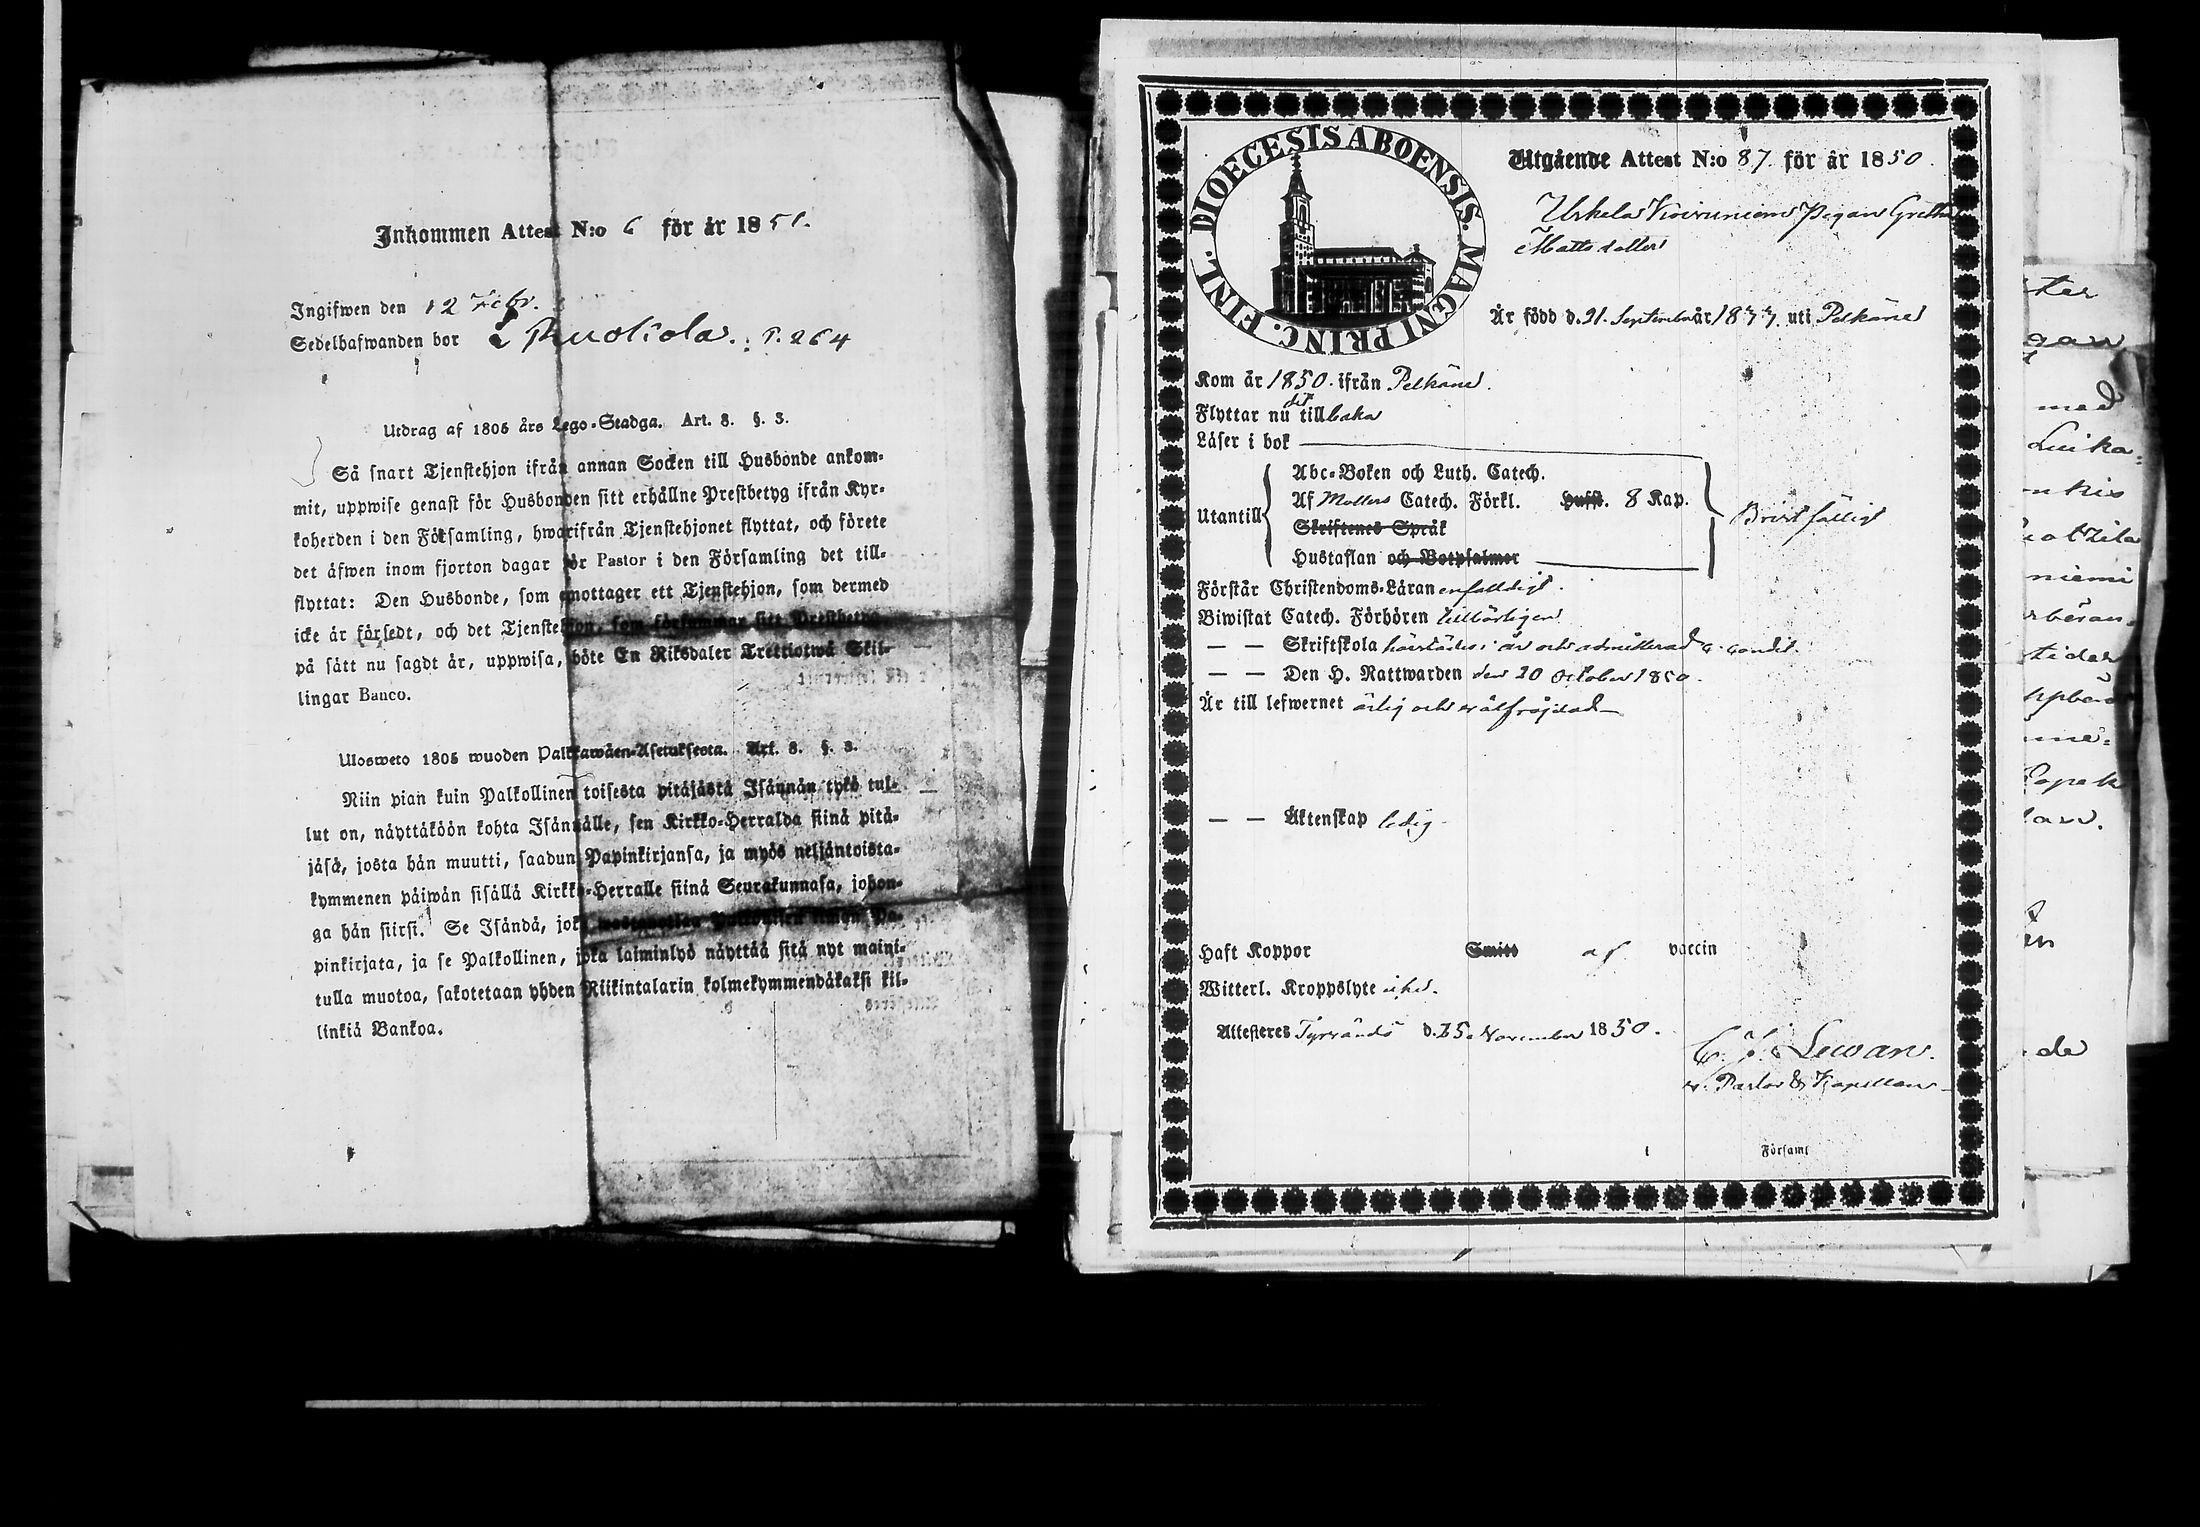 Inkommen Attest N:o 6 för år 1851.
Ingifwen den 12 Febr.
Sedelhafwanden bor i Ruokola. P. 264
Utdrag af 1805 års Lego-Stadga. Art. 8. §. 3.
Så snart Tjenstehjon ifrån annan Socken till Husbonde ankom-
mit, uppwise genast för Husbonden sitt erhållne Prestbetyg ifrån Kyr-
koherden i den Församling, hwarifrån Tjenstehjonet flyttat, och förete
det äfwen inom fjorton dagar för Pastor i den Församling det till-
flyttat: Den Husbonde, som emottager ett Tjenstehjon, som dermed
icke är försedt, och det Tjenstehjon, som försummar sitt Prestbetyg,
på sätt nu sagdt är, uppwisa, böte En Riksdaler Trettiotwå Skil-
lingar Banco.
Ulosweto 1805 wuoden Palkkawäen-Asetuksesta. Art. 8. §. 3.
Niin pian kuin Palkollinen toisesta pitäjästä Isännän tykö tul-
lut on, näyttäköön kohta Isännälle, sen Kirkko-Herralda siinä pitä-
jäsä, josta hän muutti, saadun Papinkirjansa, ja myös neljäntoista-
kymmenen päiwän sisällä Kirkko-Herralle siinä Seurakunnasa, johon-
ga hän siirsi. Se Isändä, joka wastanottaa Palkollisen ilman Pa-
pinkirjata, ja se Palkollinen, joka laiminlyö näyttää sitä nyt maini-
tulla muotoa, sakotetaan yhden Riikintalarin kolmekymmendäkaksi kil-
linkiä Bankoa.
DIOECESIS ABOENSIS. MAGNI PRINC. FINL.
Utgående Attest N:o 87. för år 1850.
Urkela Koivuniemi Pigan Greta
Mattsdotter
År född d. 21. September år 1833 uti Pelkäne
Kom år 1850. ifrån Pelkäne.
dit
Flyttar nu tillbaka
Läser i bok
Utantill
Abc-Boken och Luth. Catech.
Af Mollers Catech. Förkl. Hufst. 8 Kap.
Skriftenes Språk
Hustaflan och Botpsalmer
Bristfälligt
Förstår Christendoms-Läran enfaldigt.
Biwistat Catech. Förhören tillbörligen
— — Skriftskola härstädes i år och admitterad c. condit.
— — Den H. Nattwarden den 20 October 1850.
Är till lefwernet ärlig och wälfrejdad
— — Äktenskap ledig
Haft Koppor Smitt af vaccin
Witterl. Kroppslyte icke.
Attesteres Tyrvändö d. 25. November 1850.
C. J. Lewan.
v. Pastor & Kapellan
Församl